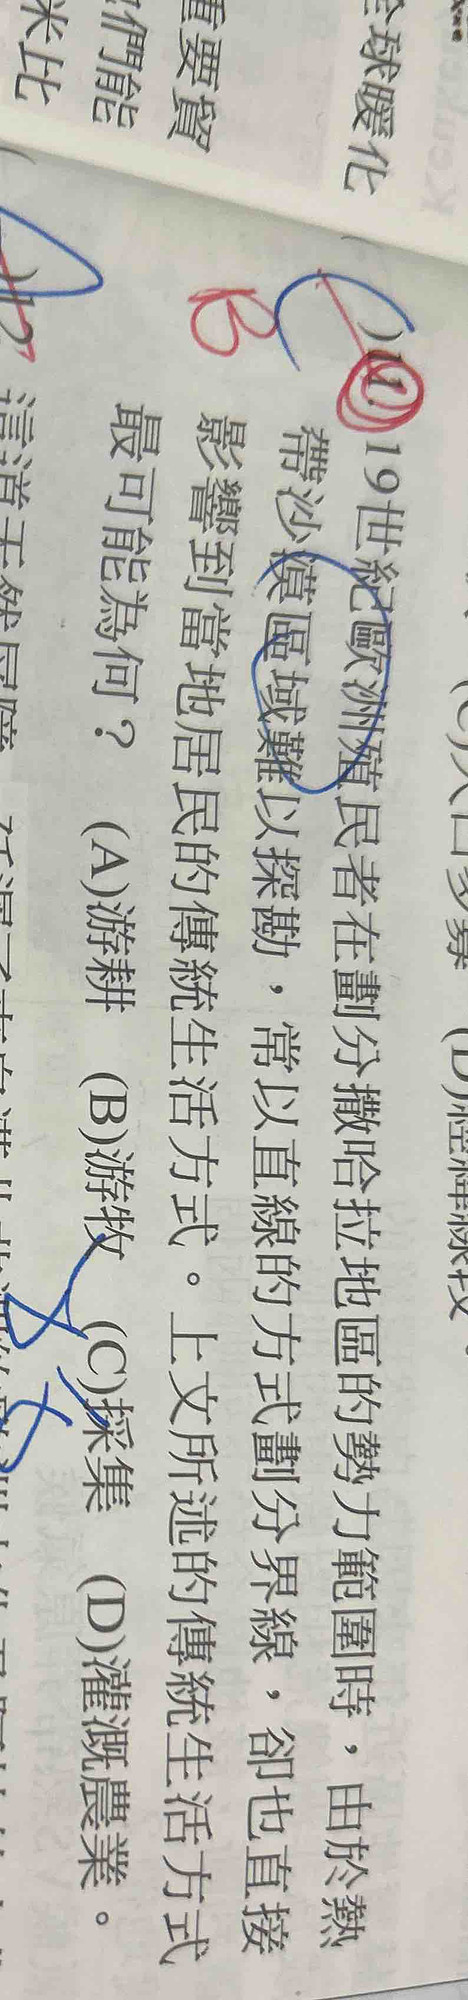 全球暖化
重要貿
們能
米比
B
C
)11. 19世紀歐洲殖民者在劃分撒哈拉地區的勢力範圍時，由於熱
帶沙漠區域難以探勘，常以直線的方式劃分界線，卻也直接
影響到當地居民的傳統生活方式。上文所述的傳統生活方式
最可能為何？ (A)游耕 (B)游牧 (C)採集 (D)灌溉農業。
)12